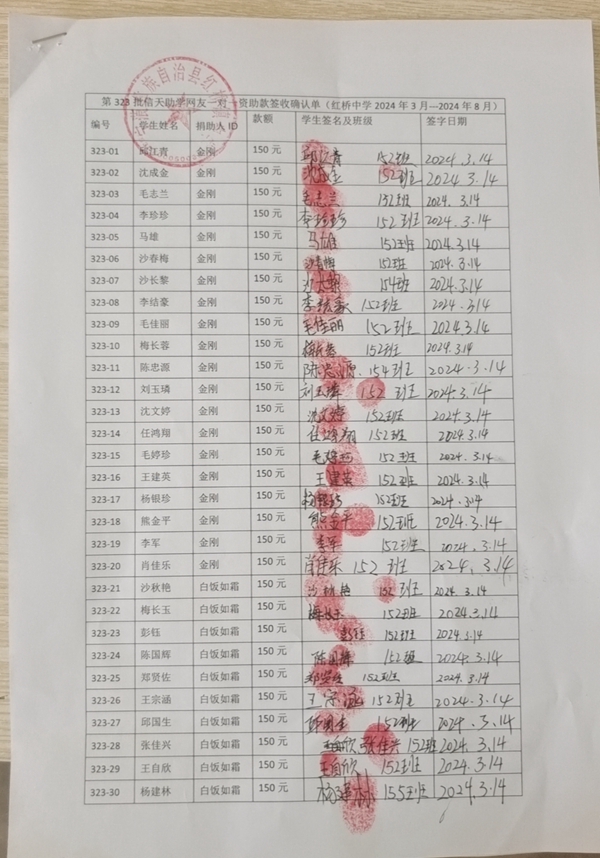 族自治县红
第 323 批信天助学网友一对一资助款签收确认单（红桥中学 2024 年 3 月---2024 年 8 月）
编号 学生姓名 捐助人 ID 款额 学生签名及班级 签字日期
323-01 邱江青 金刚 150 元 邱江青 152班 2024.3.14
323-02 沈成金 金刚 150 元 沈成金 152班 2024.3.14
323-03 毛志兰 金刚 150 元 毛志兰 152班 2024.3.14
323-04 李珍珍 金刚 150 元 李珍珍 152班 2024.3.14
323-05 马雄 金刚 150 元 马雄 152班 2024.3.14
323-06 沙春梅 金刚 150 元 沙春梅 152班 2024.3.14
323-07 沙长黎 金刚 150 元 154班 2024.3.14
323-08 李结豪 金刚 150 元 152班 2024.3.14
323-09 毛佳丽 金刚 150 元 毛佳丽 152班 2024.3.14
323-10 梅长蓉 金刚 150 元 152班 2024.3.14
323-11 陈忠源 金刚 150 元 陈忠源 154班 2024.3.14
323-12 刘玉璘 金刚 150 元 刘玉璘 152班 2024.3.14
323-13 沈文婷 金刚 150 元 沈文婷 152班 2024.3.14
323-14 任鸿翔 金刚 150 元 任鸿翔 152班 2024.3.14
323-15 毛婷珍 金刚 150 元 152班 2024.3.14
323-16 王建英 金刚 150 元 王建英 152班 2024.3.14
323-17 杨银珍 金刚 150 元 杨银珍 152班 2024.3.14
323-18 熊金平 金刚 150 元 熊金平 152班 2024.3.14
323-19 李军 金刚 150 元 李军 152班 2024.3.14
323-20 肖佳乐 金刚 150 元 肖佳乐 152班 2024.3.14
323-21 沙秋艳 白饭如霜 150 元 沙秋艳 152班 2024.3.14
323-22 梅长玉 白饭如霜 150 元 梅长玉 152班 2024.3.14
323-23 彭钰 白饭如霜 150 元 彭钰 152班 2024.3.14
323-24 陈国辉 白饭如霜 150 元 陈国辉 152班 2024.3.14
323-25 郑贤佐 白饭如霜 150 元 郑贤佐 152班 2024.3.14
323-26 王宗涵 白饭如霜 150 元 王宗涵 152班 2024.3.14
323-27 邱国生 白饭如霜 150 元 邱国生 152班 2024.3.14
323-28 张佳兴 白饭如霜 150 元 王自欣 张佳兴 152班 2024.3.14
323-29 王自欣 白饭如霜 150 元 王自欣 152班 2024.3.14
323-30 杨建林 白饭如霜 150 元 杨建林 155班 2024.3.14